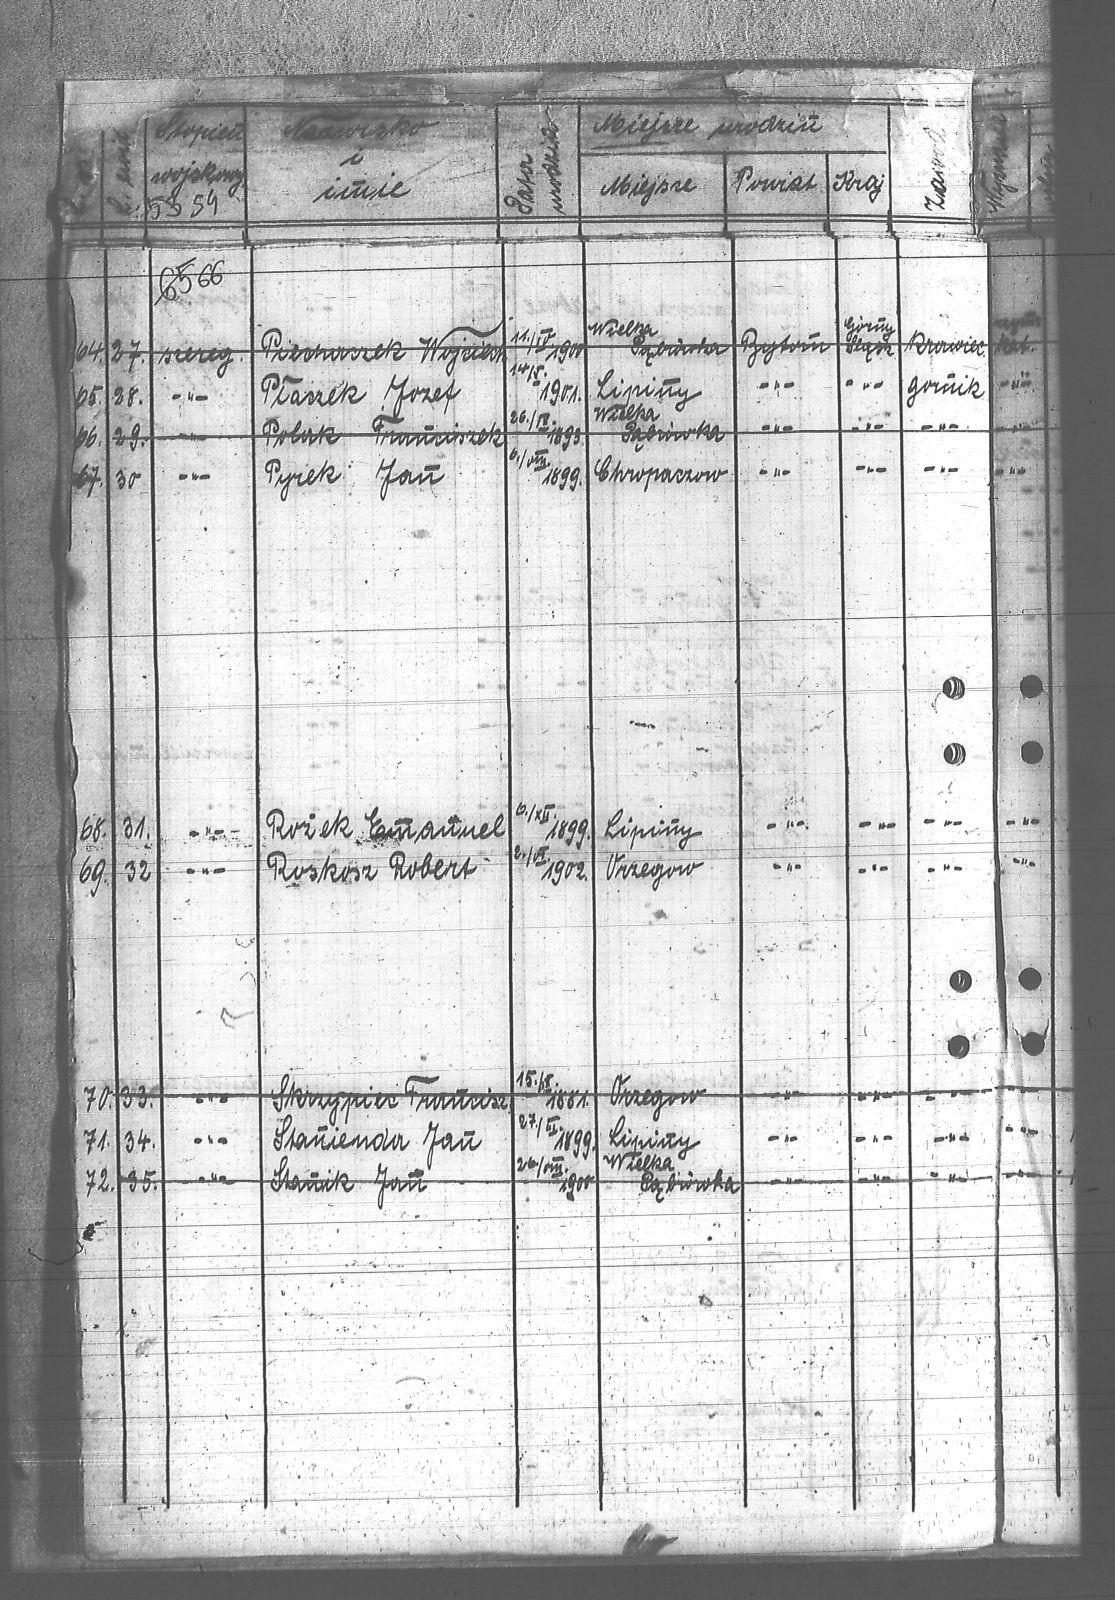 Stopień wojskowy Nazwisko i imie Data urodzin Miejsze urodziń Zawód Wyznanie
Miejsze Powiat Kraj
53 54
6566
64. 27. szereg. Piechaczek Wojciech 11./IV 1900 Wielka Dąbrówka Bytom Górny Śląsk Krawiec. Kat.
65. 28. -"- Ptaszek Jozef 1901. Lipiny -"- -"- gornik -"-
66. 29. -"- Polak Franciszek 1893. Wielka Dąbrówka -"- -"- -"- -"-
67. 30 -"- Pyrek Jan 6./VIII 1899. Chropaczow -"- -"- -"- -"-
68. 31. -"- Rożek Emanuel 6./XII 1899. Lipiny -"- -"- -"- -"-
69. 32 -"- Roskosz Robert 1902. Orzegow -"- -"- -"- -"-
70. 33. -"- Skrzypiec Francisz. 1881. Orzegow -"- -"- -"-
71. 34. -"- Stanienda Jan 1899. Lipiny -"- -"- -"- -"-
72. 35. -"- Stanik Jan 26./VIII. 1900 Wielka Dąbrówka -"- -"- -"- -"-